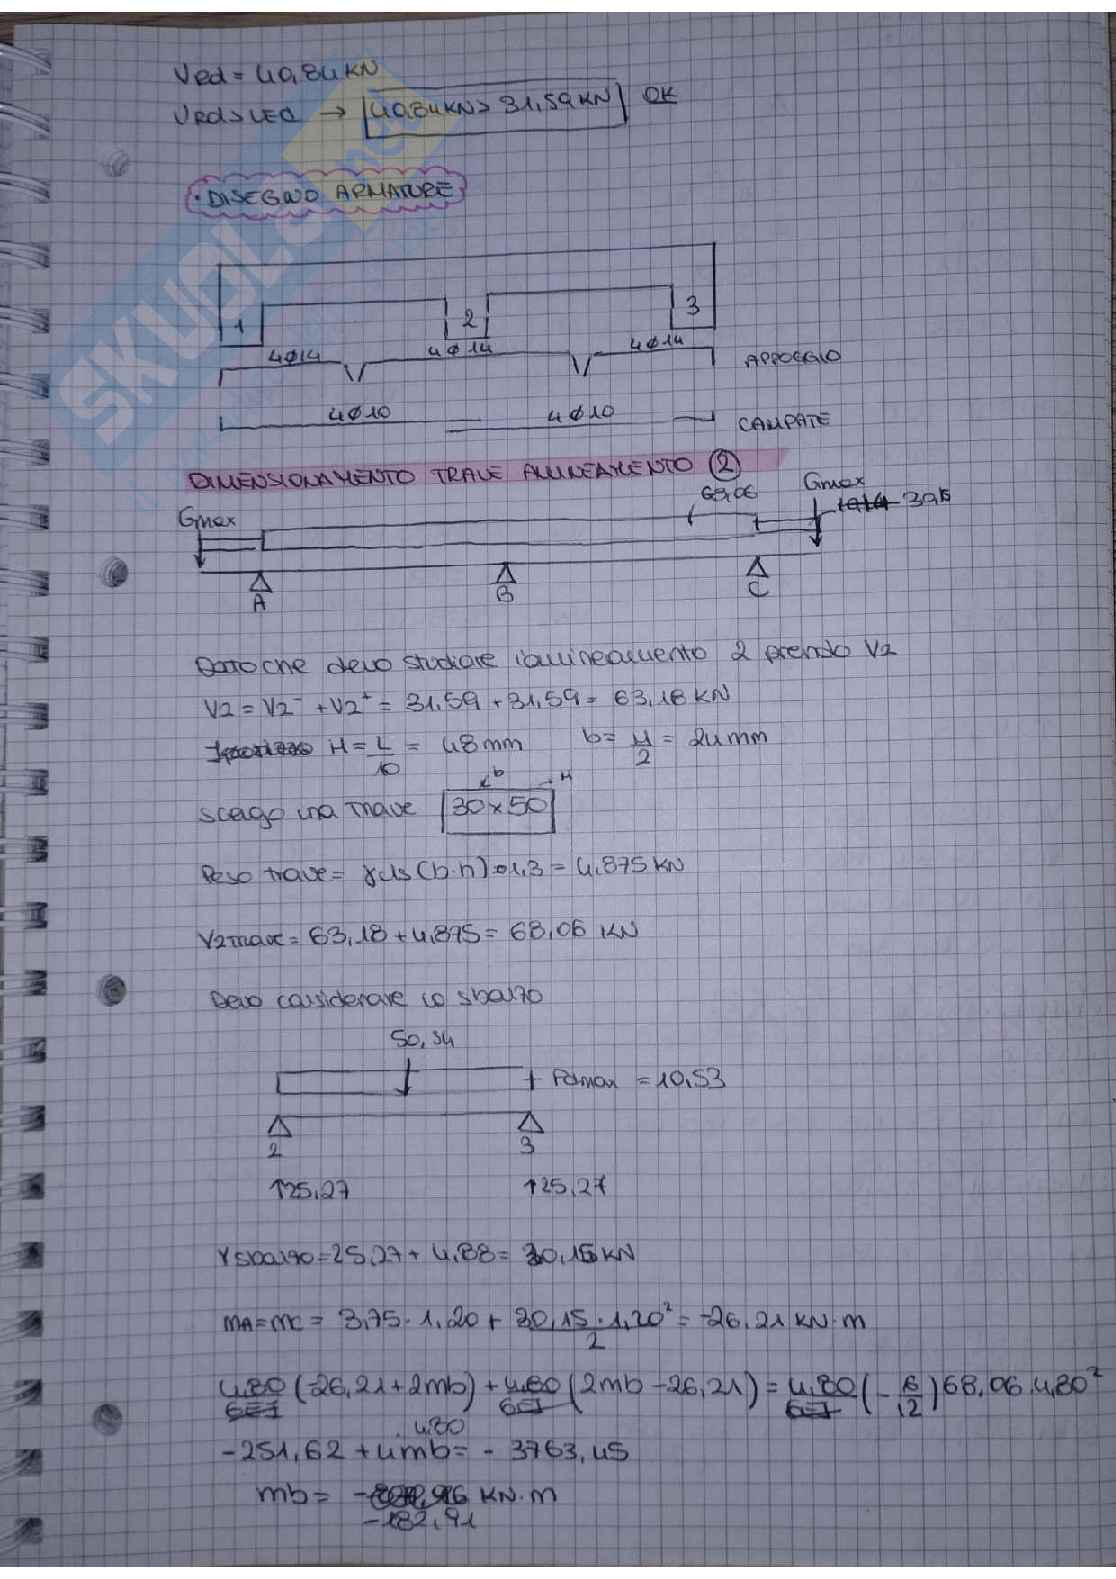 VRd = 40,84 KN
VRd > VEd → 40,84 KN > 31,59 KN OK
• DISEGNO ARMATURE
1 2 3
4Ø14 4Ø14 4Ø14 APPOGGIO
4Ø10 4Ø10 CAMPATE
DIMENSIONAMENTO TRAVE ALLINEAMENTO ②
Gmax 68,06 Gmax
3,75
A B C
Dato che devo studiare l'allineamento 2 prendo V2
V2 = V2⁻ + V2⁺ = 31,59 + 31,59 = 63,18 KN
H = L/10 = 48 mm b = H/2 = 24 mm
b H
Scelgo una trave 30x50
Peso trave = γcls (b·h)·1,3 = 4,875 KN
V2trave = 63,18 + 4,875 = 68,06 KN
Devo considerare lo sbalzo
50,54
Pdmax = 10,53
2 3
↑25,27 ↑25,27
Vsbalzo = 25,27 + 4,88 = 30,15 KN
MA = MC = 3,75 · 1,20 + 30,15 · 1,20²/2 = -26,21 KN·m
4,80/6EI (-26,21 + 2mb) + 4,80/6EI (2mb - 26,21) = 4,80/6EI (-6/12) 68,06 · 4,80²
-251,62 + 4mb · 4,80 = - 3763,45
mb = -182,91 KN·m
SKUOLA.net